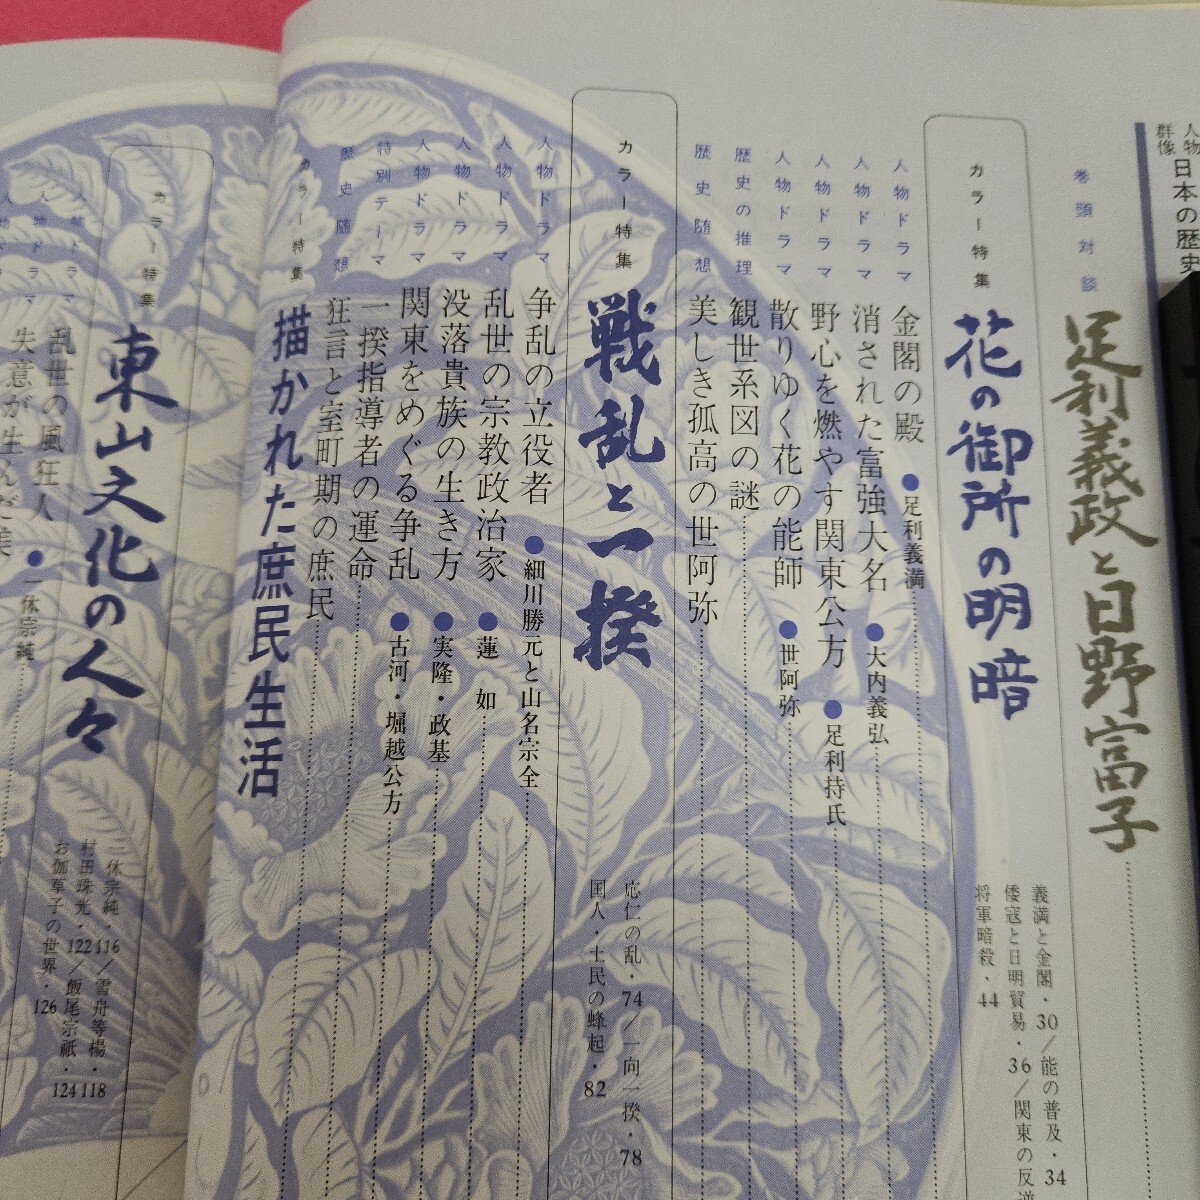 人物群像
日本の歴史
巻頭対談
足利義政と日野富子
カラー特集
花の御所の明暗
義満と金閣・30／能の普及・34
倭寇と日明貿易・36／関東の反逆
将軍暗殺・44
人物ドラマ
金閣の殿
●足利義満
人物ドラマ
消された富強大名
●大内義弘
人物ドラマ
野心を燃やす関東公方
●足利持氏
人物ドラマ
散りゆく花の能師
●世阿弥
歴史の推理
観世系図の謎
歴史随想
美しき孤高の世阿弥
カラー特集
戦乱と一揆
応仁の乱・74／一向一揆・78
国人・土民の蜂起・82
人物ドラマ
争乱の立役者
●細川勝元と山名宗全
人物ドラマ
乱世の宗教政治家
●蓮如
人物ドラマ
没落貴族の生き方
●実隆・政基
人物ドラマ
関東をめぐる争乱
●古河・堀越公方
特別テーマ
一揆指導者の運命
歴史随想
狂言と室町期の庶民
カラー特集
描かれた庶民生活
カラー特集
東山文化の人々
一休宗純・116／雪舟等楊・118
村田珠光・122／飯尾宗祇・124
お伽草子の世界・126
人物ドラマ
乱世の風狂人
●一休宗純
人物ドラマ
失意が生んだ美
人物ドラマ